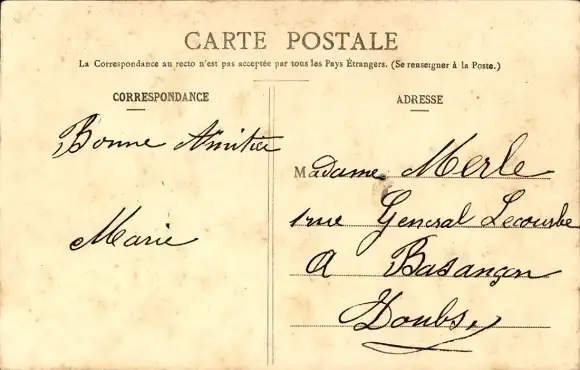 CARTE POSTALE
La Correspondance au recto n'est pas acceptée par tous les Pays Étrangers. (Se renseigner à la Poste.)
CORRESPONDANCE
Bonne Amitiée
Marie
ADRESSE
Madame Merle
1 rue General Lecourbe
A Basançon
Doubs